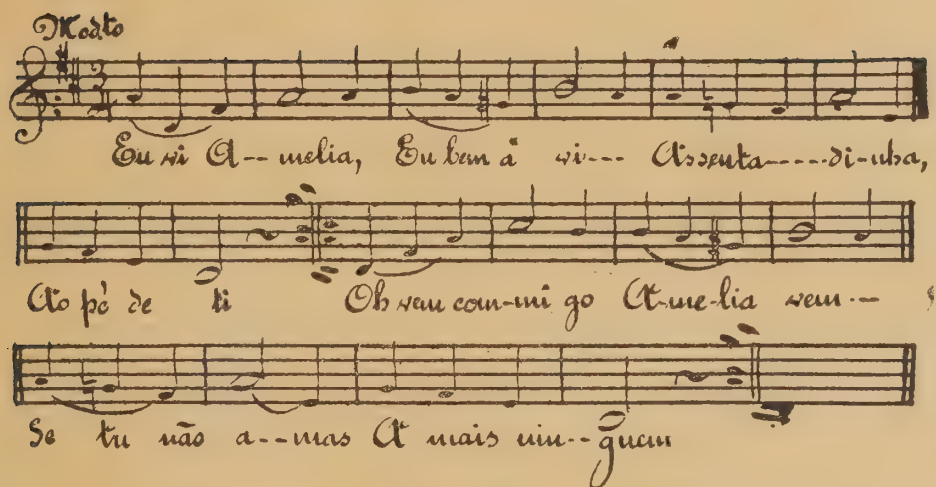 Modto
Eu vi A--melia, Eu bem á vi--- Assenta-----di-nha,
Ao pé de ti Oh vem com-mi go A-me-lia vem---
Se tu não a--mas A mais nin--guem